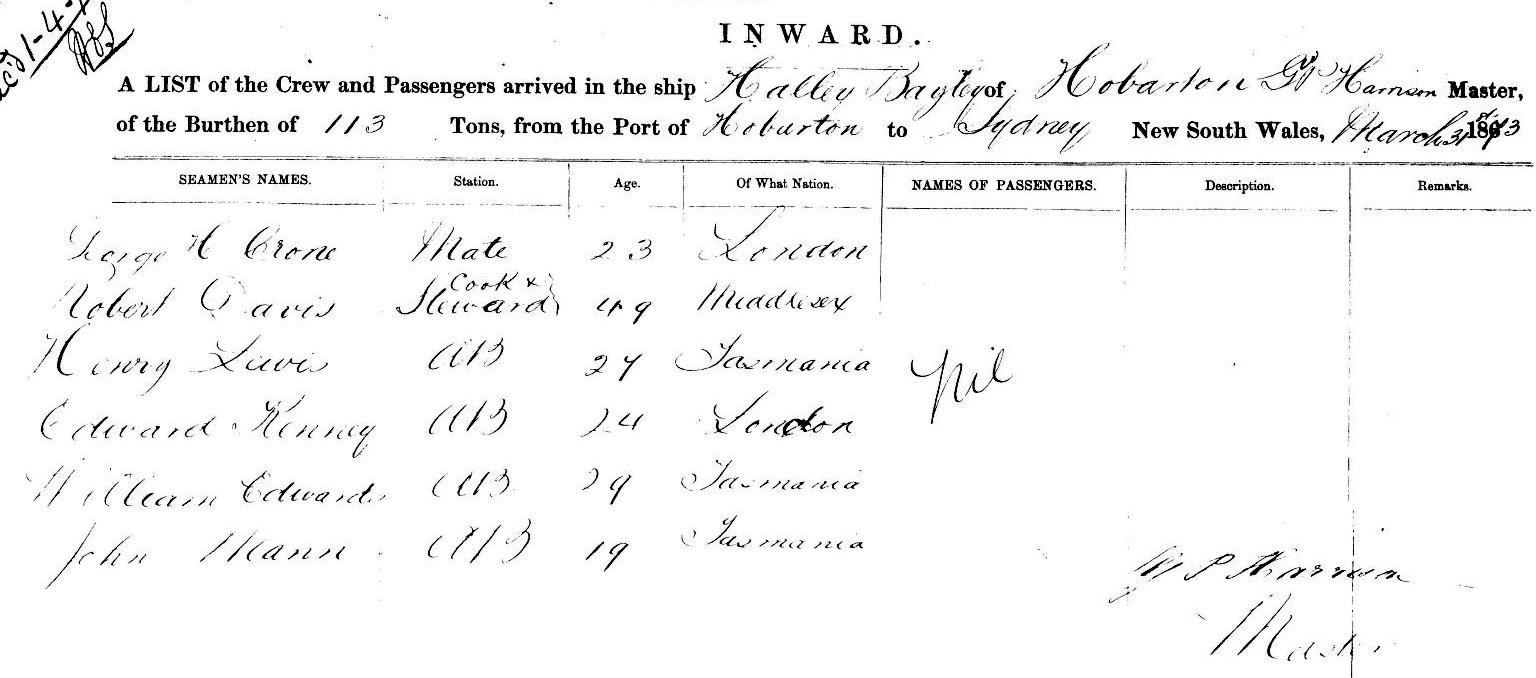 INWARD.
A LIST of the Crew and Passengers arrived in the ship Halley Bayley of Hobarton Harrison Master,
of the Burthen of 113 Tons, from the Port of Hobarton to Sydney New South Wales, March 31st 1873
SEAMEN'S NAMES. Station. Age. Of What Nation. NAMES OF PASSENGERS. Description. Remarks.
George H Crone Mate 23 London
Robert Davis Cook & Steward 49 Middlesex
Henry Lewis AB 27 Tasmania
Nil
Edward Kenney AB 24 London
William Edwards AB 29 Tasmania
John Mann AB 19 Tasmania
P Harrison
Master